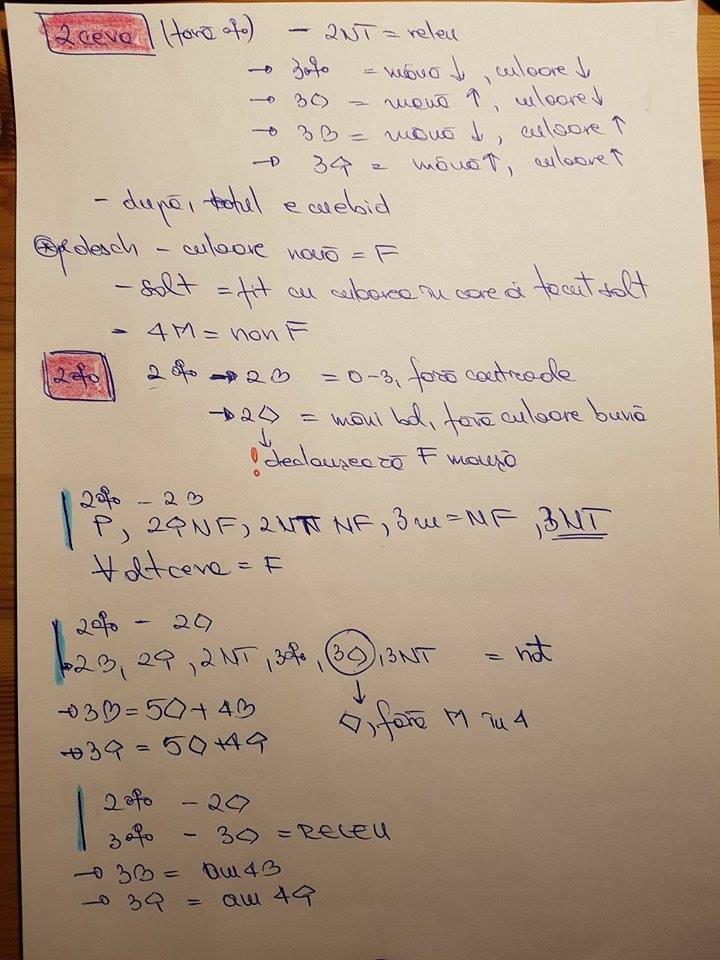 2 ceva (fără ♣) - 2NT = releu
→ 3♣ = mână ↓, culoare ↓
→ 3♢ = mană ↑, culoare ↓
→ 3♡ = mână ↓, culoare ↑
→ 3♤ = mână ↑, culoare ↑
- după, totul e cuebid
⊛ pe desch - culoare nouă = F
- salt = fit cu culoarea în care ai făcut salt
- 4M = non F
2♣ 2♣ → 2♡ = 0-3, fără controale
→ 2♢ = mâni bal, fără culoare bună
↓
! declanșează F manșă
2♣ - 2♡
P, 2♤ NF, 2NT NF, 3m = NF, 3NT
∀ altceva = F
2♣ - 2♢
→ 2♡, 2♤, 2NT, 3♣, 3♢, 3NT = nat
↓
→ 3♡ = 5♢ + 4♡ ♢, fără M în 4
→ 3♤ = 5♢ + 4♤
2♣ - 2♢
3♣ - 3♢ = RELEU
→ 3♡ = am 4♡
→ 3♤ = am 4♤